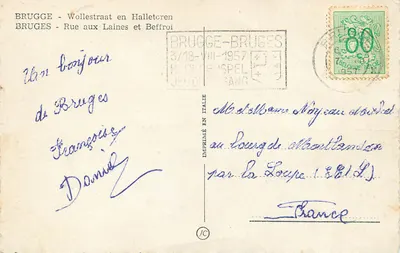 BRUGGE - Wollestraat en Halletoren
BRUGES - Rue aux Laines et Beffroi
BRUGGE-BRUGES
3/18-VIII-1957
80
1957
Un bonjour
de Bruges
Françoise
Daniel
IMPRIMÉ EN ITALIE
M. et Madame
au bourg de Montlandon
par la Loupe (E.et.L)
France